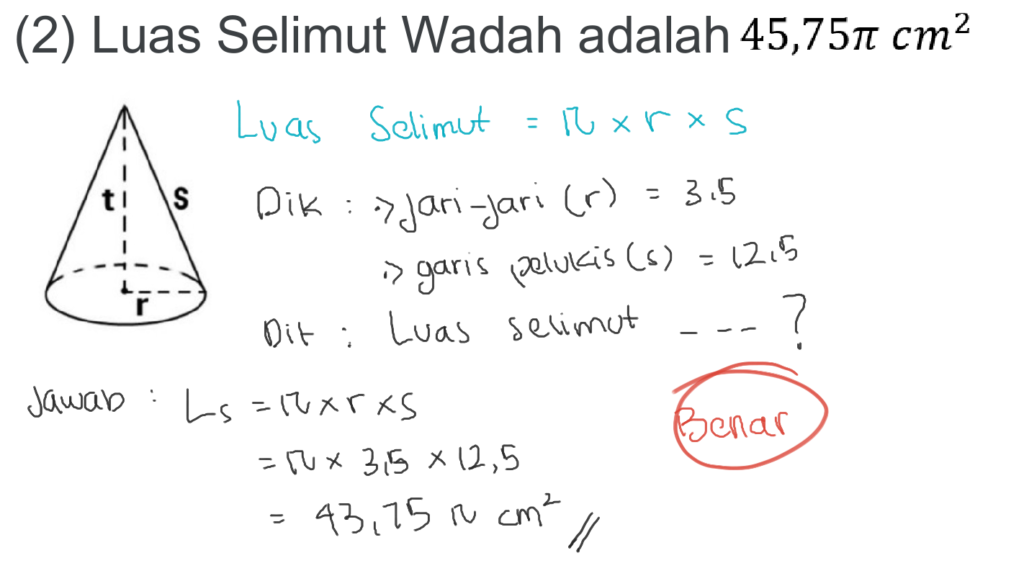 (2) Luas Selimut Wadah adalah 45,75π cm²
Luas Selimut = π × r × s
t
s
r
Dik : → Jari-jari (r) = 3.5
→ garis pelukis (s) = 12,5
Dit : Luas selimut _ _ _ ?
Jawab : Ls = π × r × s
= π × 3,5 × 12,5
= 43,75 π cm² //
Benar